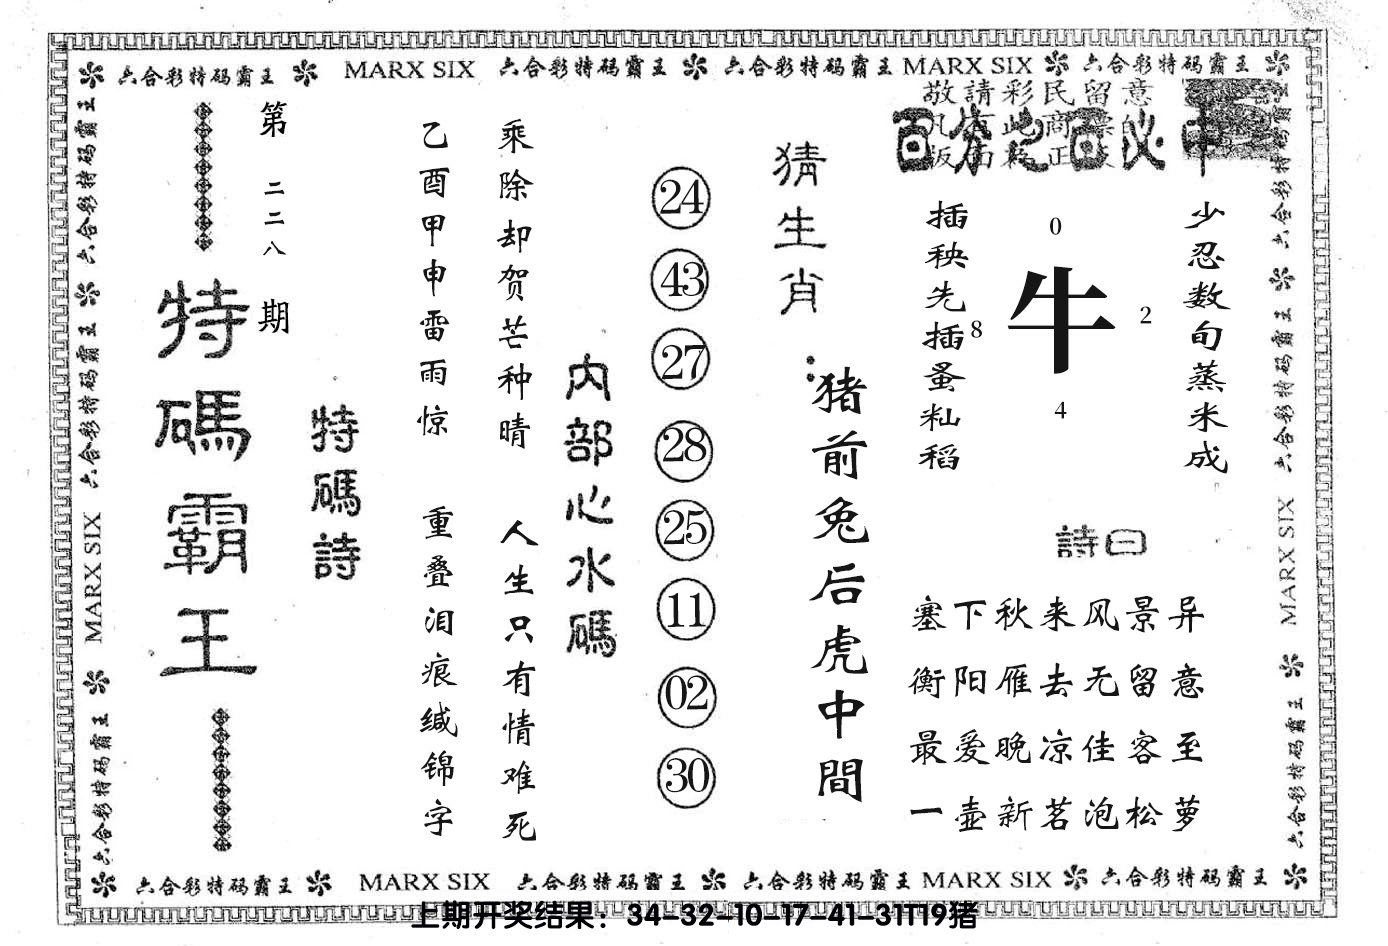 六合彩特码霸王 MARX SIX 六合彩特码霸王 六合彩特码霸王 MARX SIX 六合彩特码霸王
敬請彩民留意
百分之百必中
少忍数旬蒸米成
插秧先插蚤籼稻
0
牛
2
8
4
詩曰
塞下秋来风景异
衡阳雁去无留意
最爱晚凉佳客至
一壶新茗泡松萝
猜生肖：
猪前兔后虎中間
24
43
27
28
25
11
02
30
内部心水碼
乘除却贺芒种晴
人生只有情难死
乙酉甲申雷雨惊
重叠泪痕缄锦字
特碼詩
第二二八期
特碼霸王
六合彩特码霸王 六合彩特码霸王 MARX SIX 六合彩特码霸王
六合彩特码霸王 六合彩特码霸王 MARX SIX 六合彩特码霸王
六合彩特码霸王 MARX SIX 六合彩特码霸王 六合彩特码霸王 MARX SIX 六合彩特码霸王
上期开奖结果：34-32-10-17-41-31T19猪